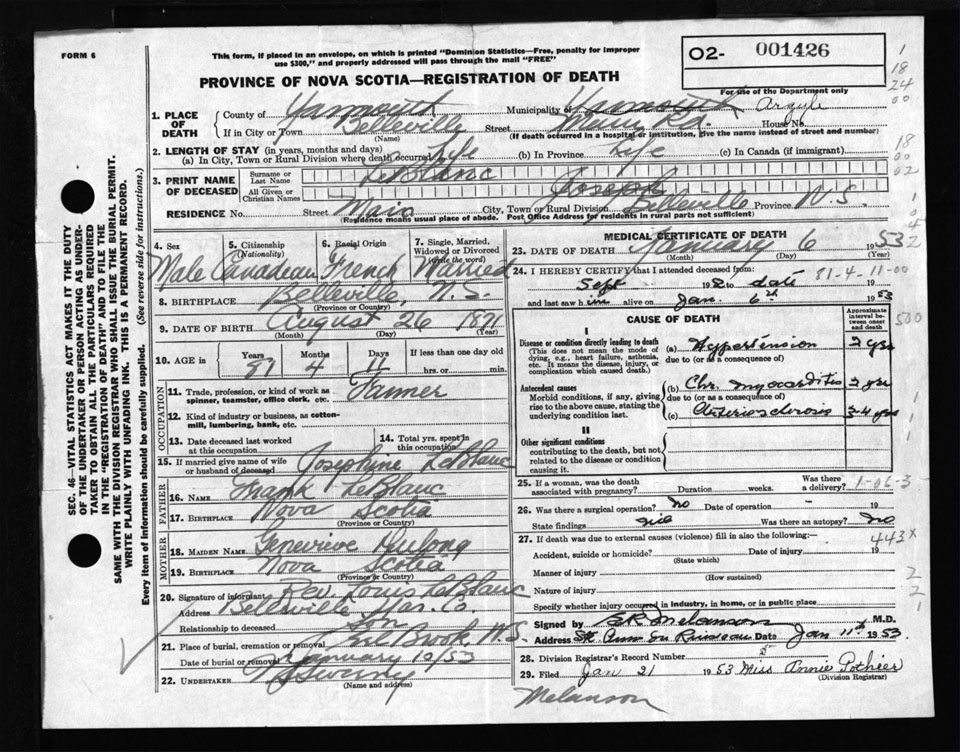 FORM 6
This form, if placed in an envelope, on which is printed "Dominion Statistics—Free, penalty for improper
use $300," and properly addressed will pass through the mail "FREE"
O2- 001426
For use of the Department only
PROVINCE OF NOVA SCOTIA—REGISTRATION OF DEATH
1. PLACE OF DEATH
County of Yarmouth Municipality of Yarmouth Argyle
If in City or Town Belleville Street House No.
(Name) (If death occurred in a hospital or institution, give the name instead of street and number)
2. LENGTH OF STAY (in years, months and days)
(a) In City, Town or Rural Division where death occurred Life (b) In Province Life (c) In Canada (if immigrant)
3. PRINT NAME OF DECEASED
Surname or Last Name LeBlanc
All Given or Christian Names Joseph
RESIDENCE No. Street Main City, Town or Rural Division Belleville Province N.S.
(Residence means usual place of abode. Post Office Address for residents in rural parts not sufficient)
4. Sex Male
5. Citizenship (Nationality) Canadian
6. Racial Origin French
7. Single, Married, Widowed or Divorced (Write the word) Married
8. BIRTHPLACE Belleville, N.S.
(Province or Country)
9. DATE OF BIRTH August 26 1871
(Month) (Day) (Year)
10. AGE in Years 81 Months 4 Days 11 If less than one day old hrs. or min.
OCCUPATION
11. Trade, profession, or kind of work as spinner, teamster, office clerk, etc. Farmer
12. Kind of industry or business, as cotton-mill, lumbering, bank, etc.
13. Date deceased last worked at this occupation
14. Total yrs. spent in this occupation
15. If married give name of wife or husband of deceased Josephine LeBlanc
FATHER
16. NAME Frank LeBlanc
17. BIRTHPLACE Nova Scotia
(Province or Country)
MOTHER
18. MAIDEN NAME Genevieve
19. BIRTHPLACE Nova Scotia
(Province or Country)
20. Signature of informant Rev. Louis LeBlanc
Address Belleville Yar. Co.
Relationship to deceased Son
21. Place of burial, cremation or removal Eel Brook N.S.
Date of burial or removal January 10/53
22. UNDERTAKER Sweeny
(Name and address)
MEDICAL CERTIFICATE OF DEATH
23. DATE OF DEATH January 6 1953
(Month) (Day)
24. I HEREBY CERTIFY that I attended deceased from: 81-4-11-00
Sept 1952 to date
and last saw him alive on Jan. 6th 1953
CAUSE OF DEATH
Approximate interval between onset and death
I
Disease or condition directly leading to death
(This does not mean the mode of dying, e.g., heart failure, asthenia, etc. It means the disease, injury, or complication which caused death.)
(a) Hypertension 2 yrs
due to (or as a consequence of)
Antecedent causes
Morbid conditions, if any, giving rise to the above cause, stating the underlying condition last.
(b) Chr. myocarditis 2 yrs
due to (or as a consequence of)
(c) Arteriosclerosis 3-4 yrs
II
Other significant conditions
contributing to the death, but not related to the disease or condition causing it.
25. If a woman, was the death associated with pregnancy? Duration weeks. Was there a delivery? 1-06-3
26. Was there a surgical operation? no Date of operation 19
State findings nil Was there an autopsy? No
27. If death was due to external causes (violence) fill in also the following:— 443x
Accident, suicide or homicide? Date of injury 19
(State which)
Manner of injury
(How sustained)
Nature of injury
Specify whether injury occurred in industry, in home, or in public place
Signed by Melanson M.D.
Address Ste. Anne du Ruisseau Date Jan 11th 1953
28. Division Registrar's Record Number 5
29. Filed Jan 21 1953 Miss Annie Pothier
(Division Registrar)
Melanson
SEC. 46—VITAL STATISTICS ACT MAKES IT THE DUTY
OF THE UNDERTAKER OR PERSON ACTING AS UNDER-
TAKER TO OBTAIN ALL THE PARTICULARS REQUIRED
IN THE "REGISTRATION OF DEATH" AND TO FILE THE
SAME WITH THE DIVISION REGISTRAR WHO SHALL ISSUE THE BURIAL PERMIT.
WRITE PLAINLY WITH UNFADING INK. THIS IS A PERMANENT RECORD.
Every item of information should be carefully supplied. (See reverse side for instructions.)
1
18
24
00
18
00
02
1
04
2
530
1
1
1
2
2
1